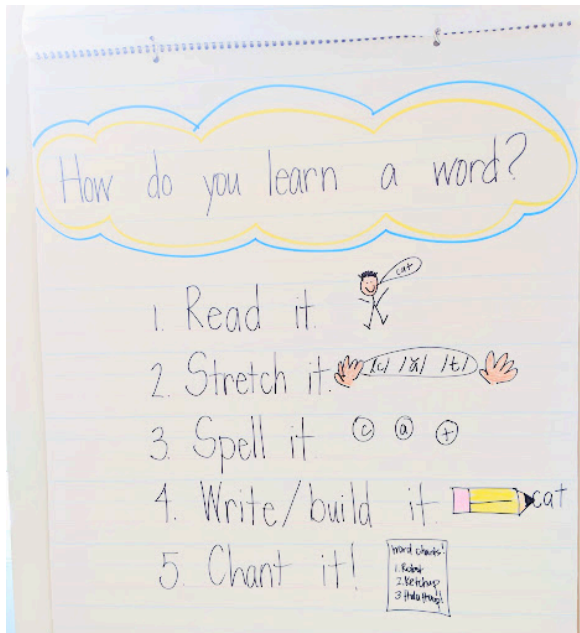 How do you learn a word?
1. Read it.
cat
2. Stretch it.
/c/ /ă/ /t/
3. Spell it
c a t
4. Write/build it.
cat
5. Chant it!
word chants!
1. Robot
2. Ketchup
3.